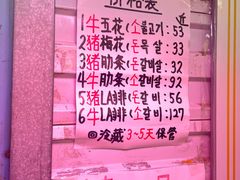 价格表 近
1牛五花(소불고기):53
2猪梅花(돈목살):33
3猪肋条(돈갈비살):32
4牛肋条(소갈비살):92
5猪LA排(돈갈비):56
6牛LA排(소갈비):127
@冷藏 3~5天 保管